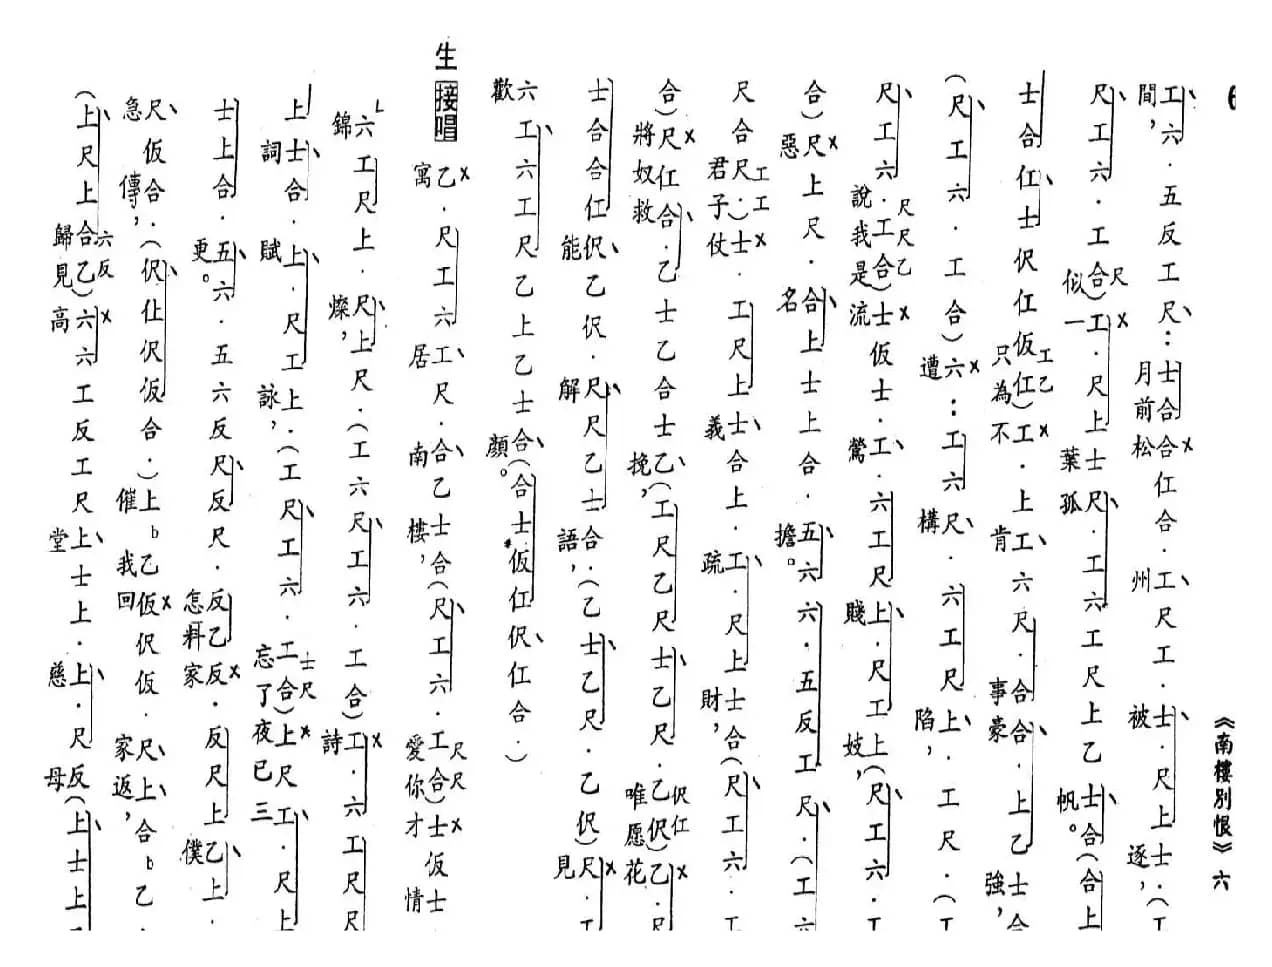 6
《南樓別恨》六
工六．五反工尺：士合合仜合．工尺工．士．尺上士．（工
間，月前松州被逐，
尺工六．工合）工．尺上士尺．工六工尺上乙士合（合上
尺
似一葉孤帆。
士合仜士伬仜仮仜）工．上工六尺．合合．上乙士合
工乙
只為不肯事豪強，
（尺工六．工合）六：工六尺．六工尺上．工尺．（工
遭構陷，
尺工六．工合）士仮士．工．六工尺上．尺工上（尺工六．工
尺尺乙
說我是流鶯賤妓，
合）尺上尺．合上士上合．五六六．五反工尺．（工六
惡名擔。
尺合尺．）士．工尺上士合上．工．尺上士合（尺工六．工
工工
君子仗義疏財，
合）尺仜合．乙士乙合士乙（工尺乙尺士乙尺．乙伬）乙．尺
伬仜
將奴救挽，唯愿花
士合合仜伬乙伬．尺尺乙士合．（乙士乙尺．乙伬）尺．工
能解語，見
六工六工尺乙上乙士合（合士仮仜伬仜合．）
歡顏。
生 接唱
乙．尺工六工尺．合乙士合（尺工六．工合）士仮士
尺尺
寓居南樓，愛你才情
六工尺上．尺上尺．（工六尺工六．工合）工．六工尺尺
錦燦，詩
上士合．上．尺工上．（工尺工六．工合）上尺工．尺上
士尺
詞賦詠，忘了夜已三
士上合．五六．五六反尺反尺．反乙反．反尺上乙上．
更。怎料家僕
尺仮合．（伬仩伬仮合．）上b乙仮伬仮．尺上合b乙．
急傳，催我回家返，
（上尺上合乙）六六工反工尺上士上．上．尺反（上士上
六反
歸見高堂慈母